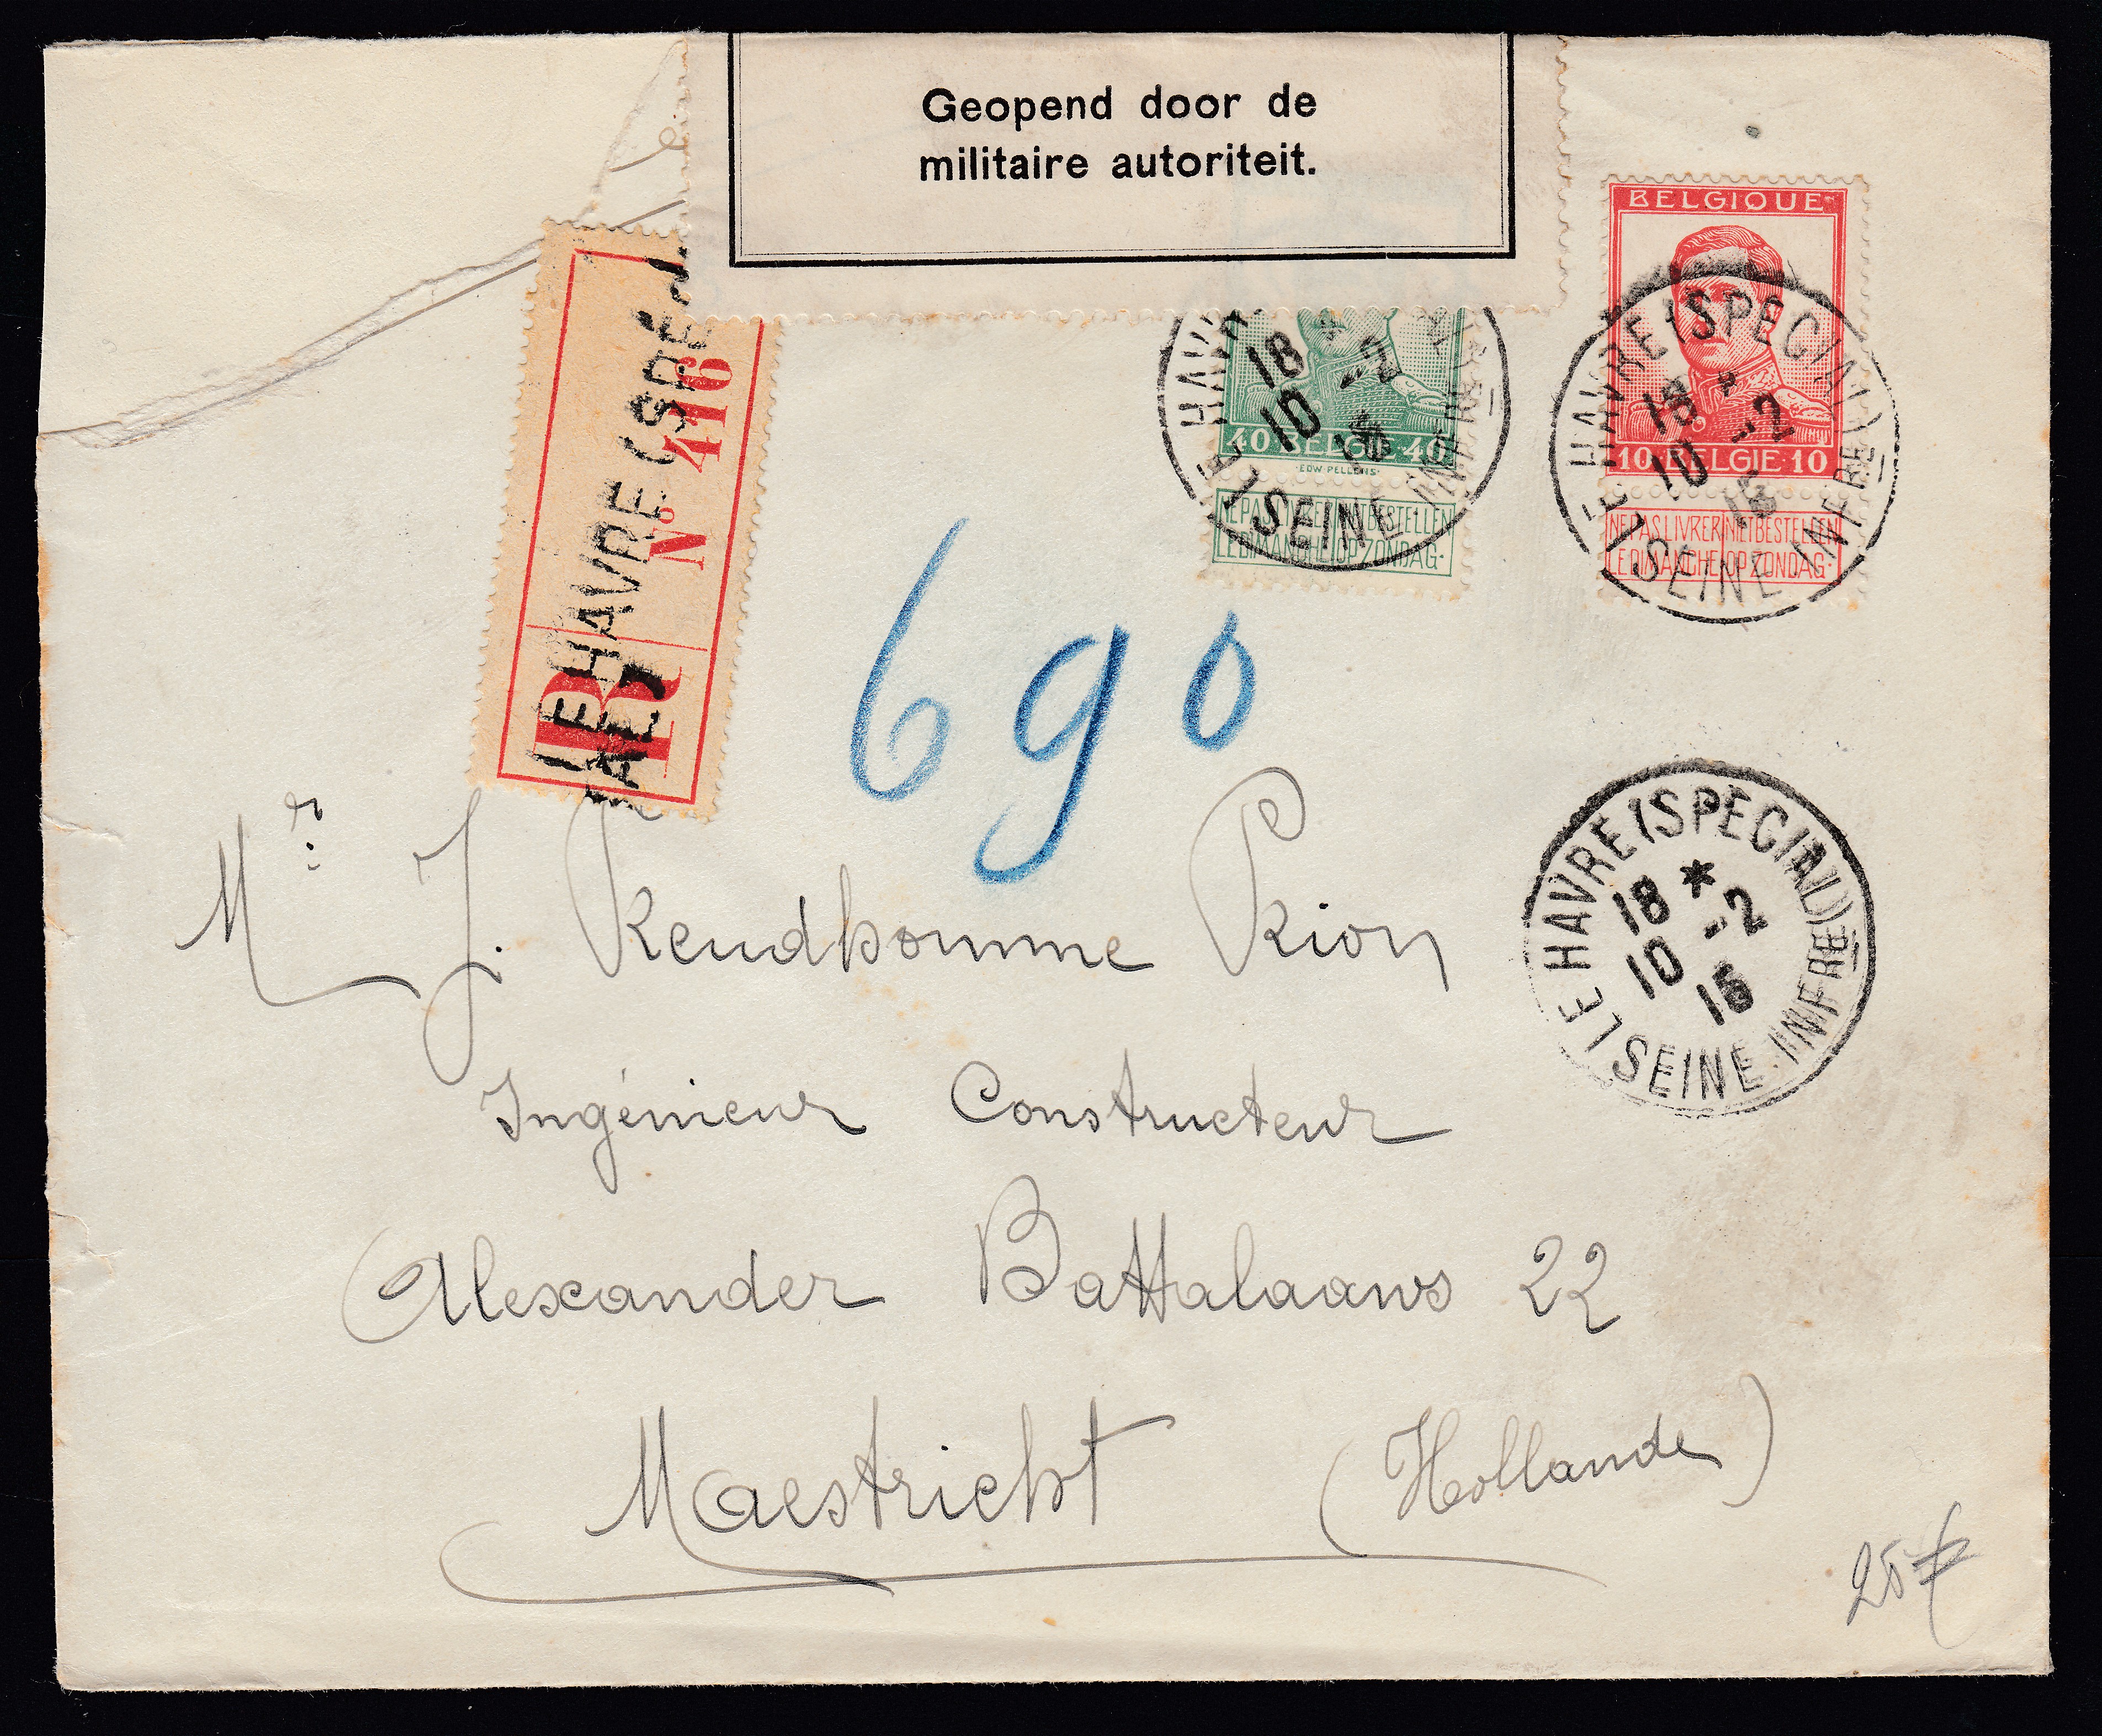 Geopend door de
militaire autoriteit.
BELGIQUE
10 BELGIE 10
NE PAS LIVRER NIET BESTELLEN
LE DIMANCHE OP ZONDAG
LE HAVRE (SPECIAL)
18 * -2
10 15
SEINE INFRE
40 BELGIE 40
EDW PELLENS
NE PAS LIVRER NIET BESTELLEN
LE DIMANCHE OP ZONDAG
LE HAVR
18 * -2
10
SEINE INFRE
R No. 416
LE HAVRE (SPÉCI
AL)
690
LE HAVRE (SPECIAL)
18 * -2
10 15
SEINE INFRE
Mr. J. Rendhomme Rion
Ingénieur Constructeur
Alexander Battalaans 22
Maestricht (Hollande)